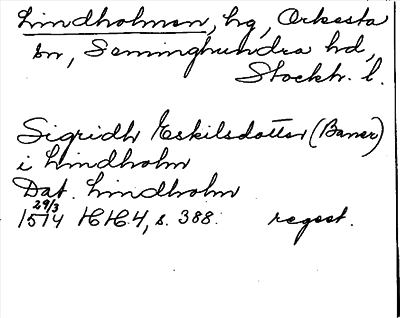 Lindholmen, hg, Orkesta
sn, Seminghundra hd,
Stockh. l.
Sigridh Eskilsdotter (Baner)
i Lindholm
Dat. Lindholm
29/3
1514 HH 4, s. 388. regest.